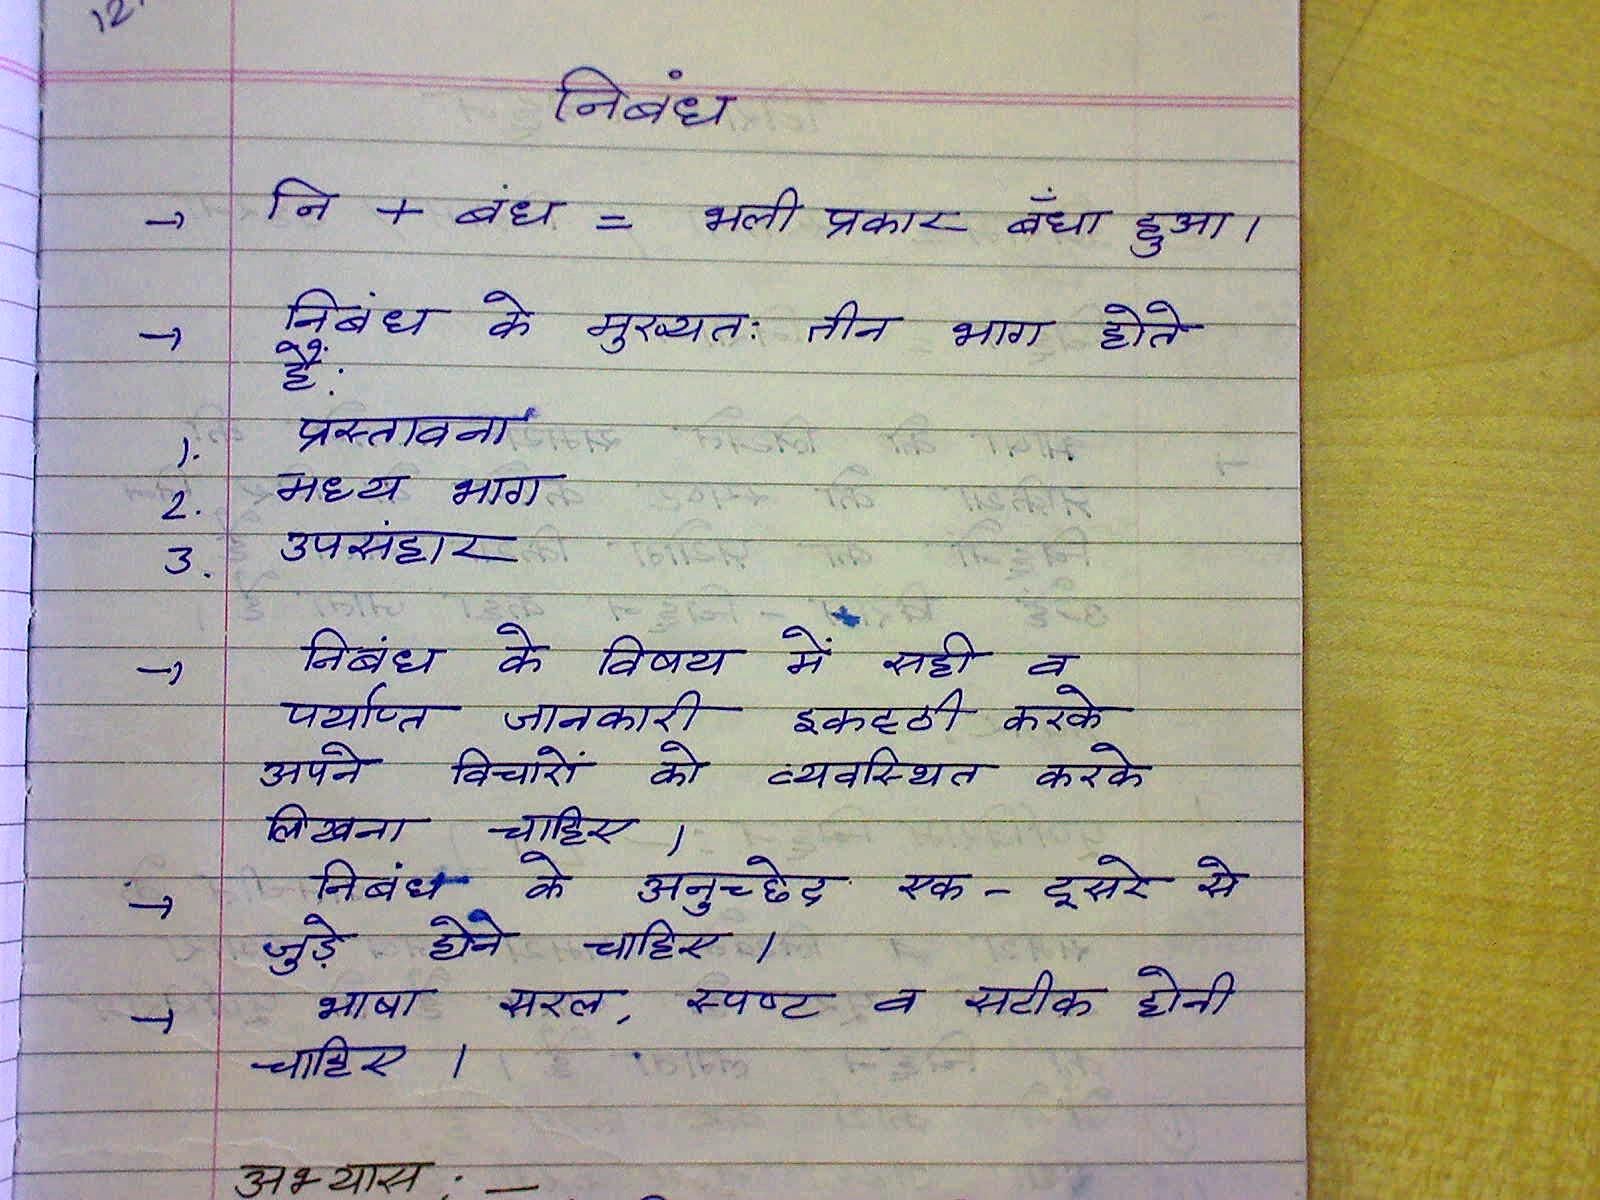 निबंध
→ नि + बंध = भली प्रकार बँधा हुआ।
→ निबंध के मुख्यत: तीन भाग होते
हैं:
1. प्रस्तावना
2. मध्य भाग
3. उपसंहार
→ निबंध के विषय में सही व
पर्याप्त जानकारी इकट्ठी करके
अपने विचारों को व्यवस्थित करके
लिखना चाहिए।
→ निबंध के अनुच्छेद एक - दूसरे से
जुड़े होने चाहिए।
→ भाषा सरल, स्पष्ट व सटीक होनी
चाहिए।
अभ्यास : —